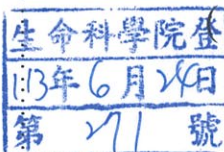 生命科學院登
113年6月24日
第271號